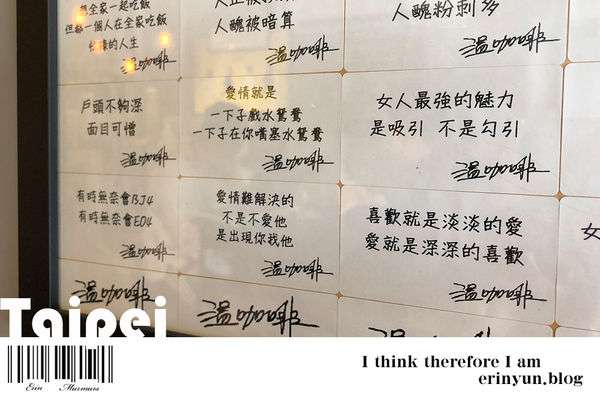 想全家一起吃飯
但都一個人在全家吃飯
的人生
溫咖啡
人醜被暗算
溫咖啡
人醜粉刺多
溫咖啡
戶頭不夠深
面目可憎
溫咖啡
愛情就是
一下子戲水鴛鴦
一下子在你嘴塞水鴛鴦
溫咖啡
女人最強的魅力
是吸引 不是勾引
溫咖啡
有時無奈會BJ4
有時無奈會E04
溫咖啡
愛情難解決的
不是不愛他
是出現你我他
溫咖啡
喜歡就是淡淡的愛
愛就是深深的喜歡
溫咖啡
女
溫咖啡
溫咖啡
Taipei
Erin Murmurs
I think therefore I am
erinyun.blog